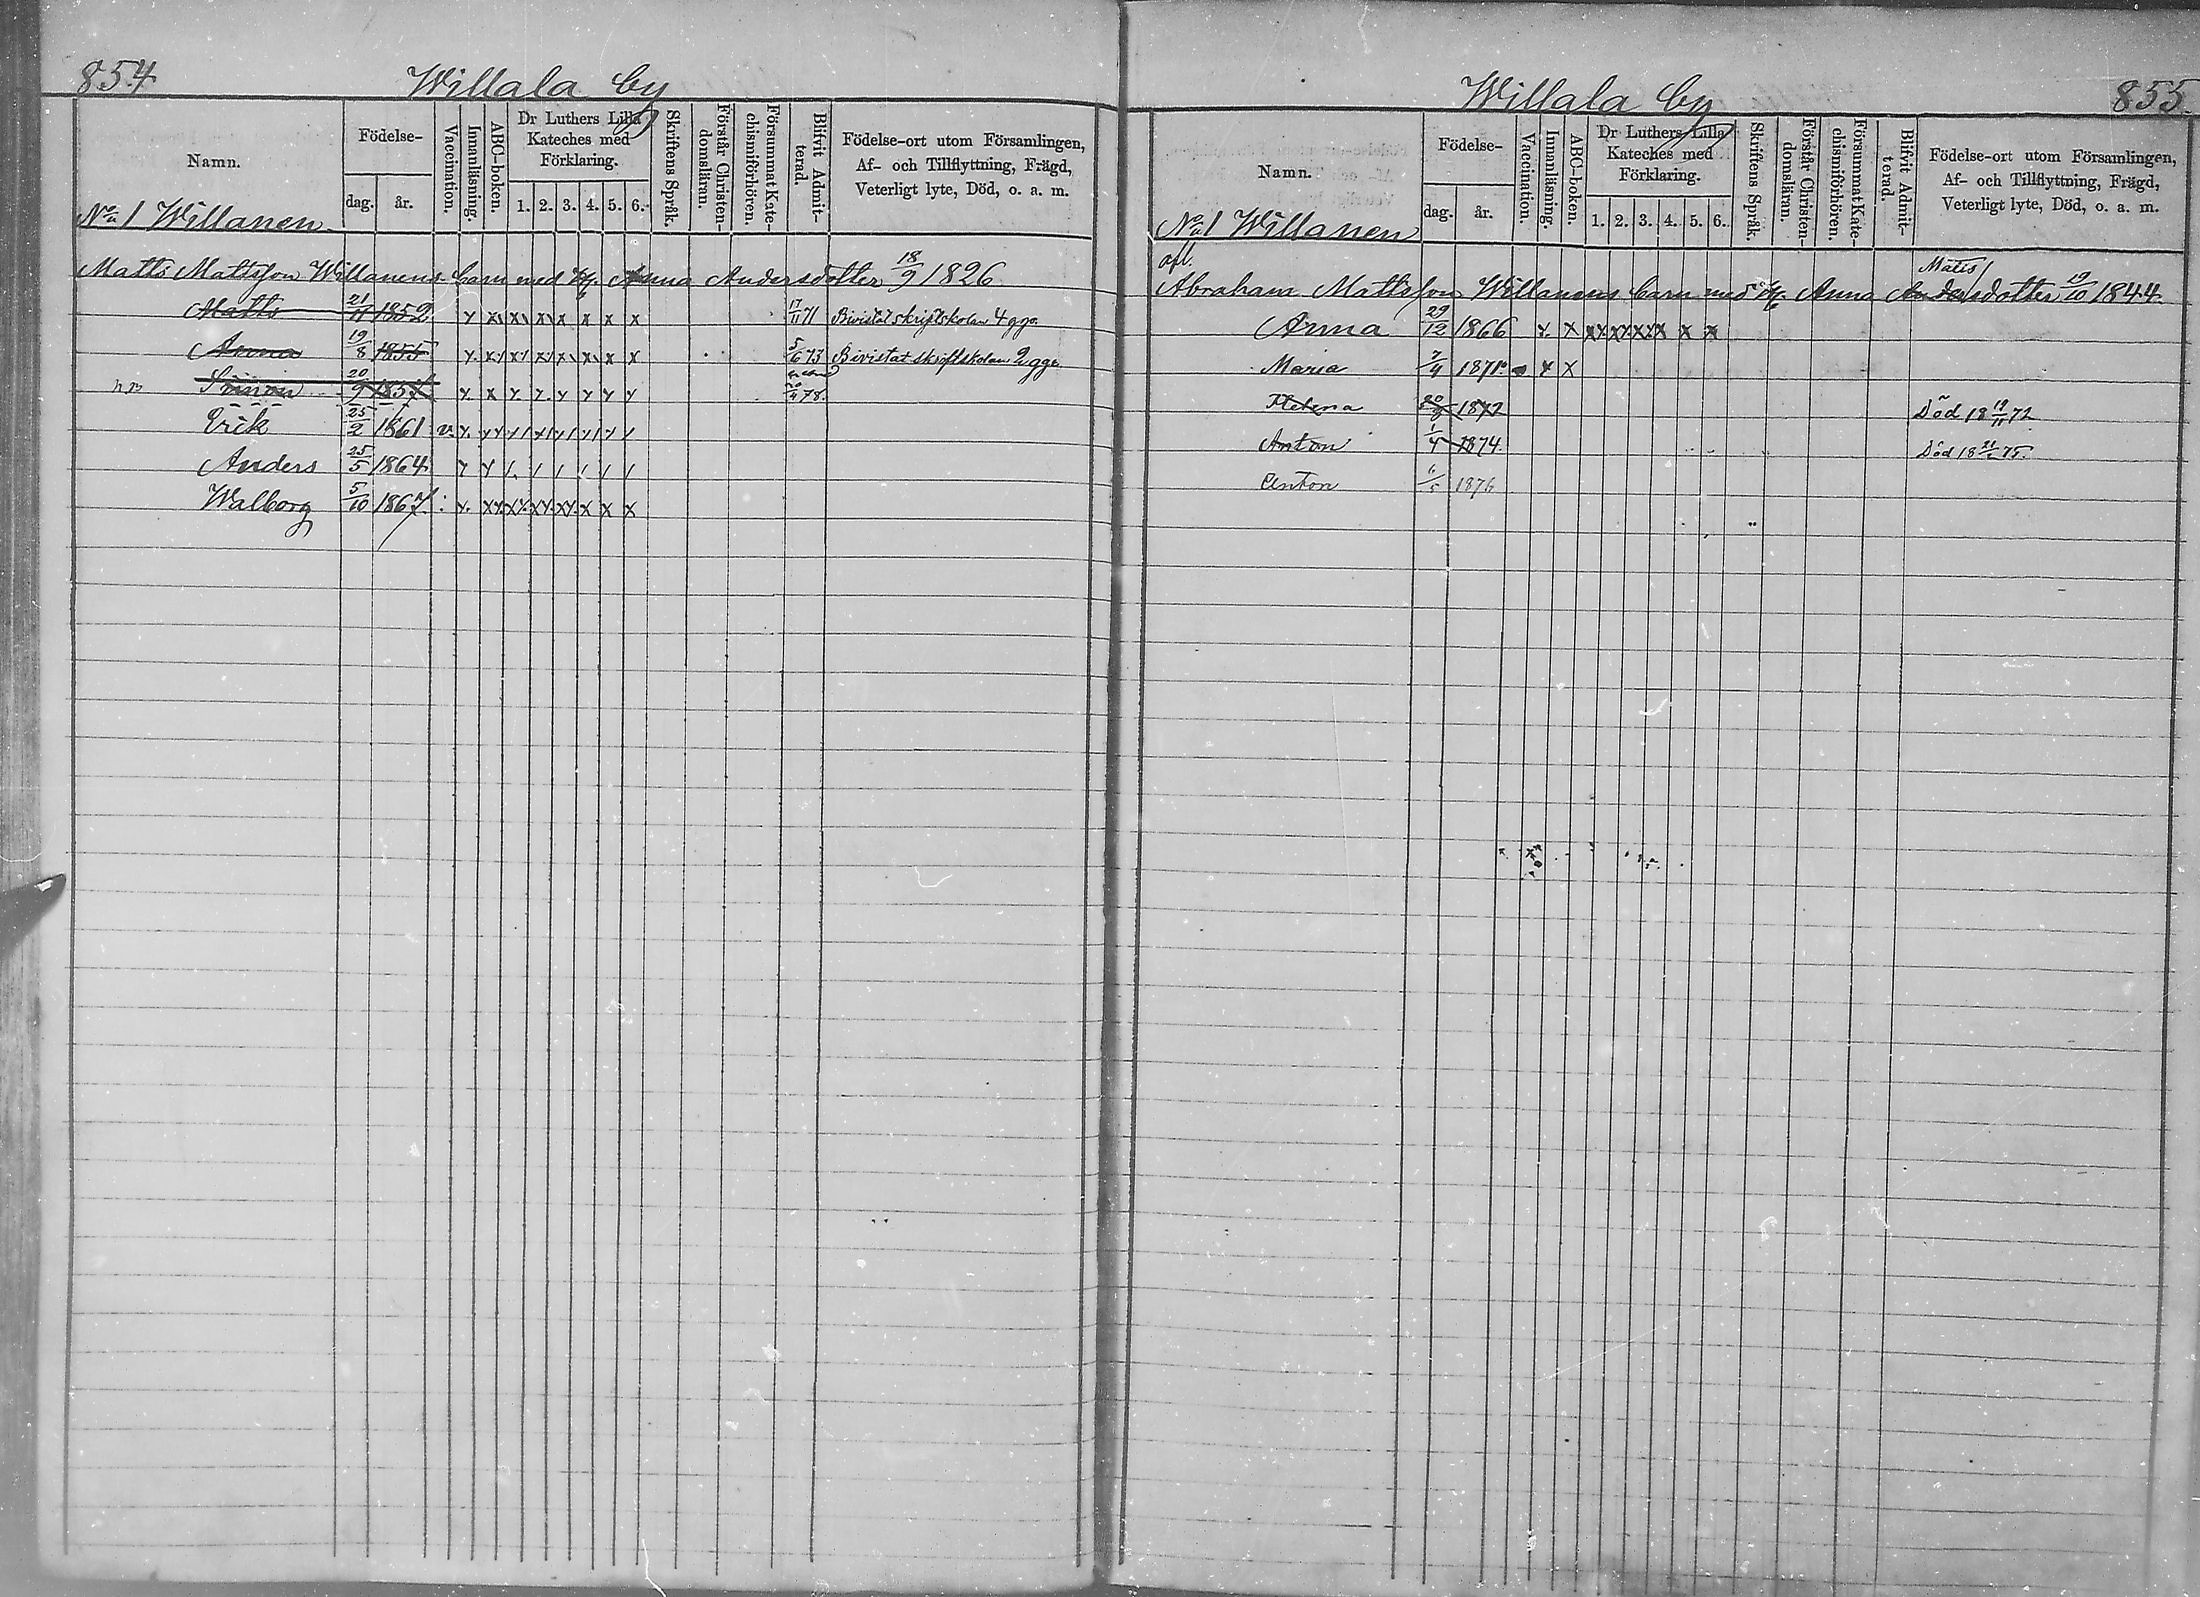 854
Willala by
Namn.
Födelse-
dag.
år.
Vaccination.
Innanläsning.
ABC-boken.
Dr Luthers Lilla
Kateches med
Förklaring.
1. 2. 3. 4. 5. 6.
Skriftens Språk.
Förstår Christen-
domsläran.
Försummat Kate-
chismiförhören.
Blifvit Admit-
terad.
Födelse-ort utom Församlingen,
Af- och Tillflyttning, Frägd,
Veterligt lyte, Död, o. a. m.
No 1 Willanen
Matts Mattsson Willanens barn med H. Anna Andersdotter 18/9 1826
Matts 21/11 1852 x x x x x x x x 17/11 71 Bivistat skriftskolan 4 ggr.
Anna 19/8 1855 x x x x x x x x 5/6 73 Bivistat skriftskolan 2 ggr
20/9 1857 x x x x x x x x 78
Erik 25/2 1861 v.
Anders 25/5 1864
Walborg 5/10 1867
855
Willala by
Namn.
Födelse-
dag.
år.
Vaccination.
Innanläsning.
ABC-boken.
Dr Luthers Lilla
Kateches med
Förklaring.
1. 2. 3. 4. 5. 6.
Skriftens Språk.
Förstår Christen-
domsläran.
Försummat Kate-
chismiförhören.
Blifvit Admit-
terad.
Födelse-ort utom Församlingen,
Af- och Tillflyttning, Frägd,
Veterligt lyte, Död, o. a. m.
No 1 Willanen
afl. Mats
Abraham Mattsson Willanens barn med H. Anna Andersdotter 19/10 1844
Anna 29/12 1866
Maria 7/4 1871
Helena 1872 Död 18 72
Anton 1/4 1874 Död 18 75.
Anton 1876